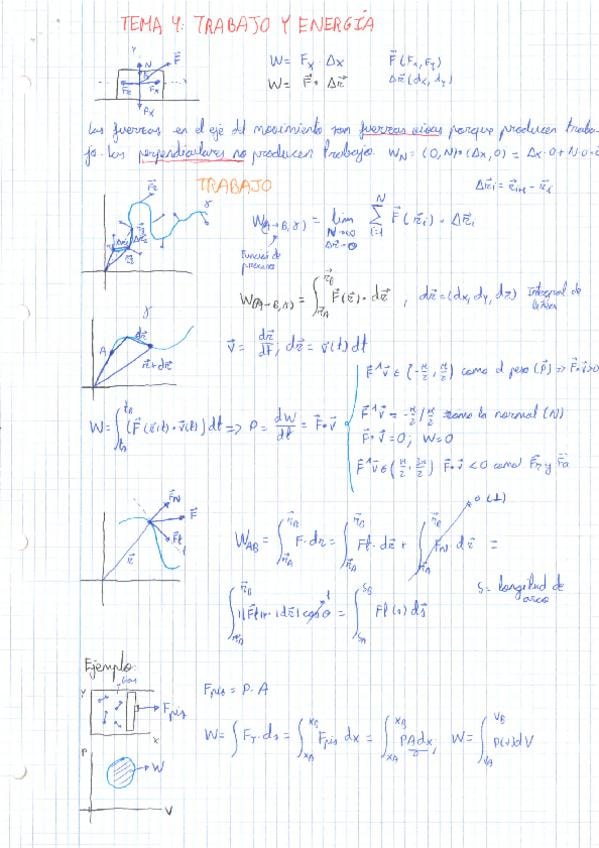 TEMA 4: TRABAJO Y ENERGÍA
W = Fx · Δx
F⃗ (Fx, Fy)
W = F⃗ · Δr⃗
Δr⃗ (dx, dy)
Las fuerzas en el eje del movimiento son fuerzas vivas porque producen traba-
jo. Las perpendiculares no producen trabajo. W_N = (0, N)·(Δx, 0) = Δx·0 + N·0 = 0
TRABAJO
Δr⃗i = r⃗i+1 − r⃗i
W(A→B, γ) = lim N→∞ Δr⃗→0 Σ i=1 N F⃗(r⃗i) · Δr⃗i
Función de
proceso
W(A→B, γ) = ∫ r⃗A r⃗B F⃗(r⃗) · dr⃗ , dr⃗ = (dx, dy, dz)
Integral de
línea
v⃗ = dr⃗/dt, dr⃗ = v⃗(t) dt
F⃗^v⃗ ∈ (-π/2, π/2) como el peso (P⃗) ⇒ F⃗·v⃗ > 0
W = ∫ tA tB (F⃗(r⃗(t)) · v⃗(t)) dt ⇒ P = dW/dt = F⃗·v⃗
F⃗^v⃗ = -π/2 / π/2 como la normal (N)
F⃗·v⃗ = 0; W = 0
F⃗^v⃗ ∈ (π/2, 3π/2) F⃗·v⃗ < 0 como
W_AB = ∫ r⃗A r⃗B F · dr = ∫ r⃗A r⃗B Ft · dr⃗ + ∫ r⃗A r⃗B F_N dr⃗ =
0 (⊥)
∫ r⃗A r⃗B |Ft| · |dr⃗| cos θ = ∫ sA sB Ft (s) ds⃗
1
S = longitud de
arco
Ejemplo:
Gas
F pis
Fpis = P · A
W = ∫ F_T · ds = ∫ xA xB Fpis dx = ∫ xA xB P A dx, W = ∫ VA VB P(v) dV
P
W
V